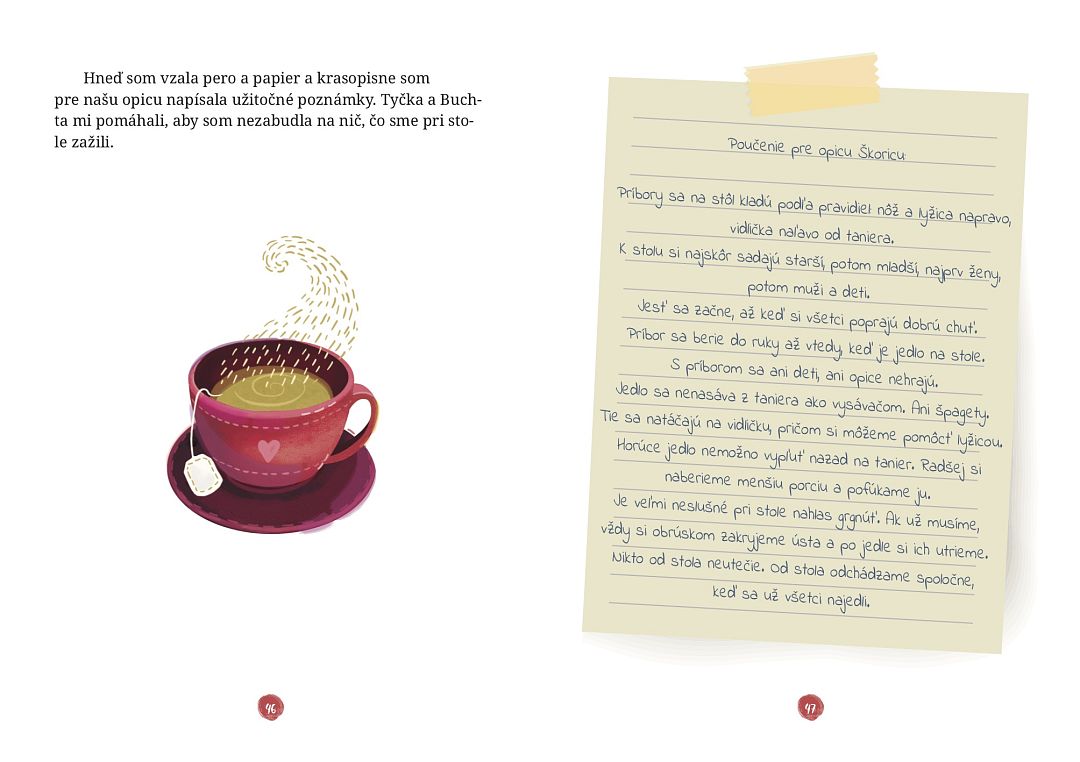 Hneď som vzala pero a papier a krasopisne som
pre našu opicu napísala užitočné poznámky. Tyčka a Buch-
ta mi pomáhali, aby som nezabudla na nič, čo sme pri sto-
le zažili.
46
Poučenie pre opicu Škoricu
Príbory sa na stôl kladú podľa pravidiel nôž a lyžica napravo,
vidlička naľavo od taniera.
K stolu si najskôr sadajú starší, potom mladší, najprv ženy,
potom muži a deti.
Jesť sa začne, až keď si všetci poprajú dobrú chuť.
Príbor sa berie do ruky až vtedy, keď je jedlo na stole.
S príborom sa ani deti, ani opice nehrajú.
Jedlo sa nenasáva z taniera ako vysávačom. Ani špagety.
Tie sa natáčajú na vidličku, pričom si môžeme pomôcť lyžicou.
Horúce jedlo nemožno vypľuť nazad na tanier. Radšej si
naberieme menšiu porciu a pofúkame ju.
Je veľmi neslušné pri stole nahlas grgnúť. Ak už musíme,
vždy si obrúskom zakryjeme ústa a po jedle si ich utrieme.
Nikto od stola neutečie. Od stola odchádzame spoločne,
keď sa už všetci najedli.
47